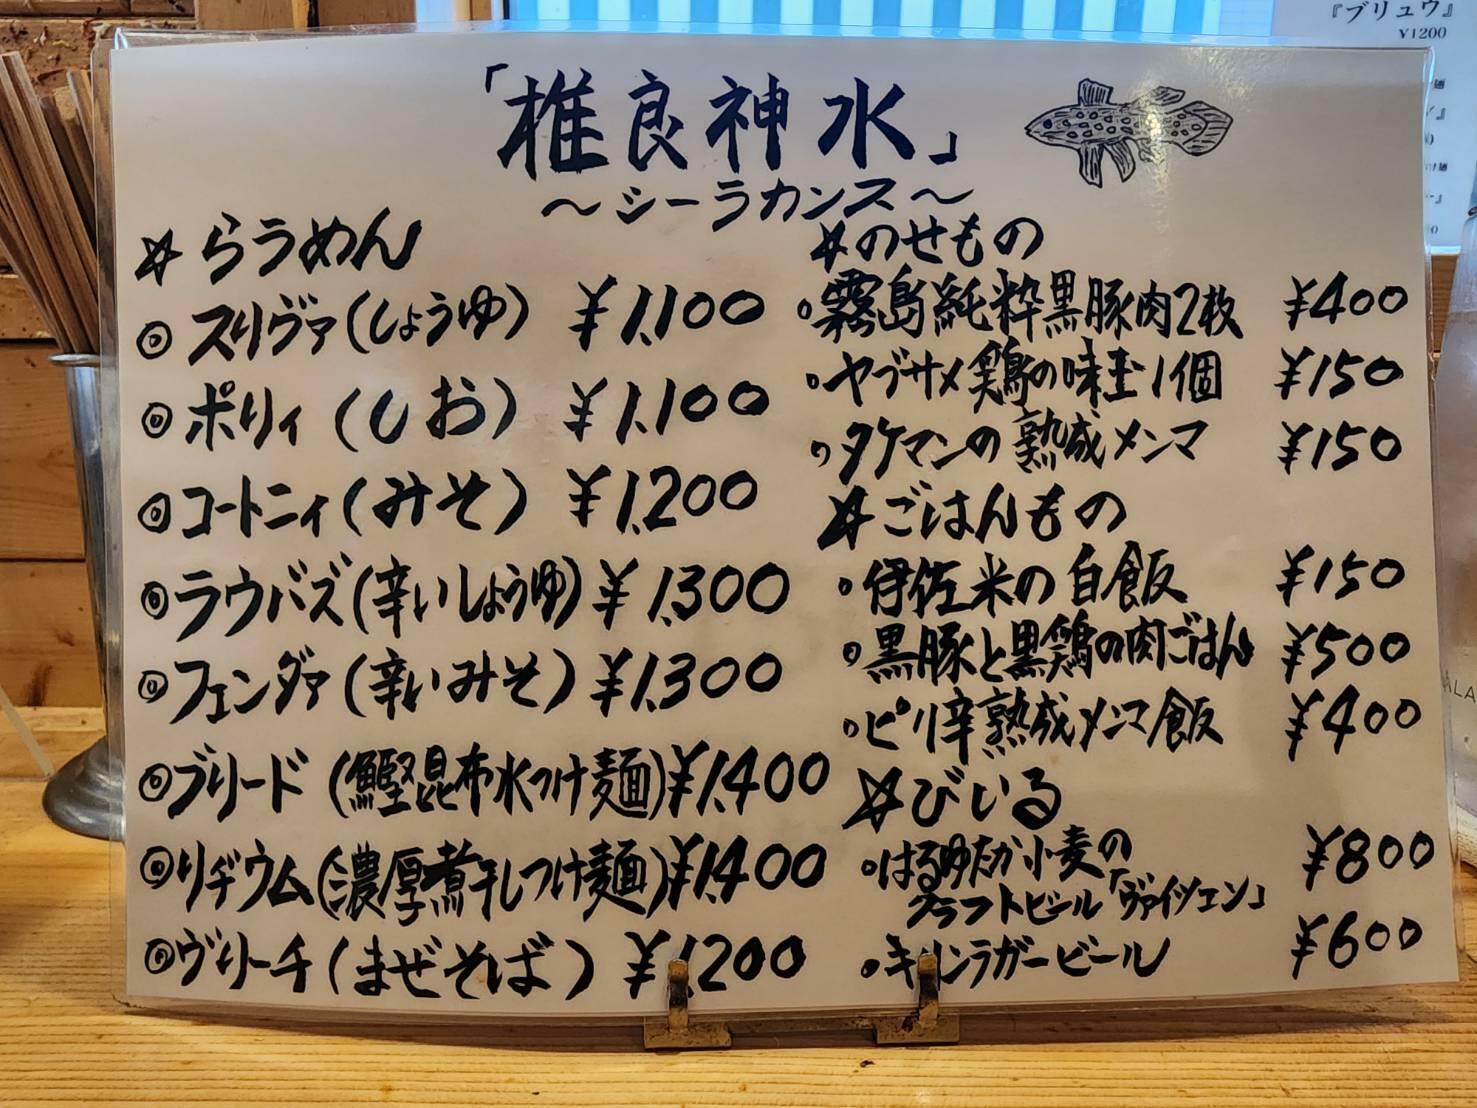 「椎良神水」
～シーラカンス～
☆らうめん
◎スリヴァ(しょうゆ) ¥1,100
◎ポリィ(しお) ¥1,100
◎コートニィ(みそ) ¥1,200
◎ラウバズ(辛いしょうゆ) ¥1,300
◎フェンダァ(辛いみそ) ¥1,300
◎ブリード(鰹昆布水つけ麺) ¥1,400
◎リヂウム(濃厚煮干しつけ麺) ¥1,400
◎ヴリーチ(まぜそば) ¥1,200
☆のせもの
○霧島純粋黒豚肉2枚 ¥400
○ヤブサメ鶏の味玉1個 ¥150
○タケマンの熟成メンマ ¥150
☆ごはんもの
○伊佐米の白飯 ¥150
○黒豚と黒鶏の肉ごはん ¥500
○ピリ辛熟成メンマ飯 ¥400
☆びいる
○はるゆたか小麦の
クラフトビール「ヴァイツェン」 ¥800
○キリンラガービール ¥600
『ブリュウ』
¥1200